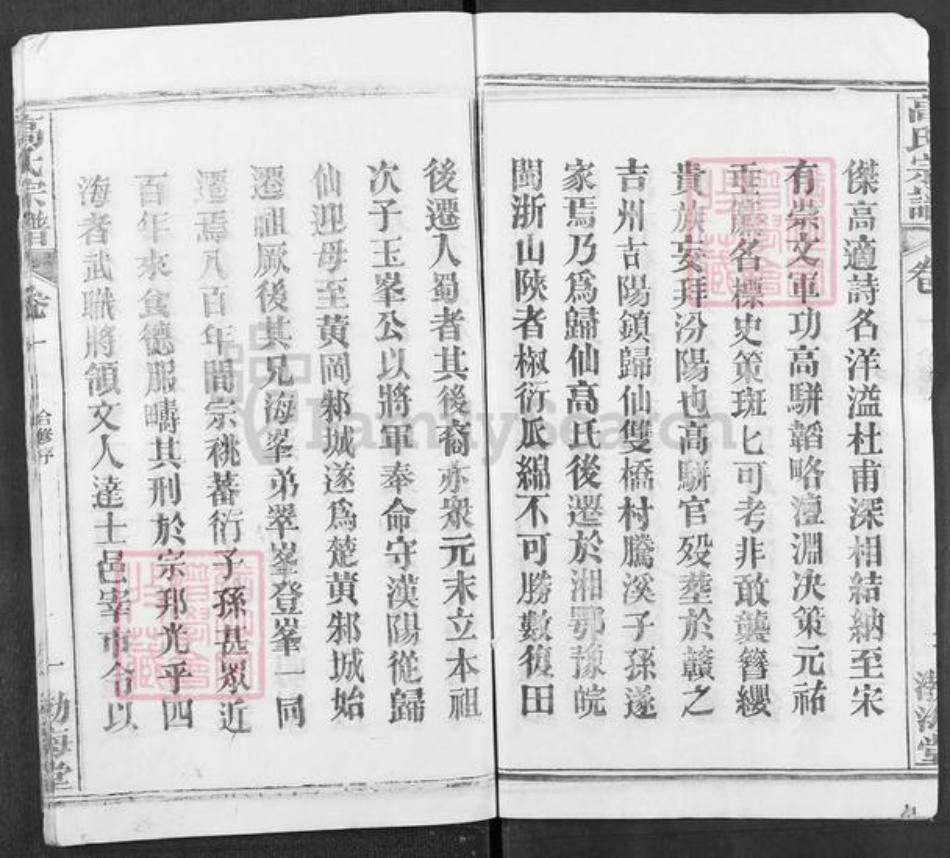 高氏宗譜
卷一
渤海堂
傑高適詩名洋溢杜甫深相結納至宋
有崇文軍功高駢韜略澶淵决策元祐
垂簾名標史策班匕可考非敢襲簪纓
貴族妄拜汾陽也高駢官殁塟於贛之
吉州吉陽鎮歸仙雙橋村騰溪子孫遂
家焉乃爲歸仙高氏後遷於湘鄂豫皖
閩浙山陝者椒衍派綿不可勝數復田
後遷入蜀者其後裔亦衆元末立本祖
次子玉峯公以將軍奉命守漢陽從歸
仙迎母至黄岡邾城遂爲楚黄邾城始
遷祖厥後其兄海峯弟翠峯登峯一同
遷焉八百年間宗祧蕃衍子孫甚眾近
百年來食德服疇其刑於宗邦光乎四
海者武職將領文人達士邑宰市令以
高氏宗譜
卷一
合修序
一
渤海堂
FamilySearch